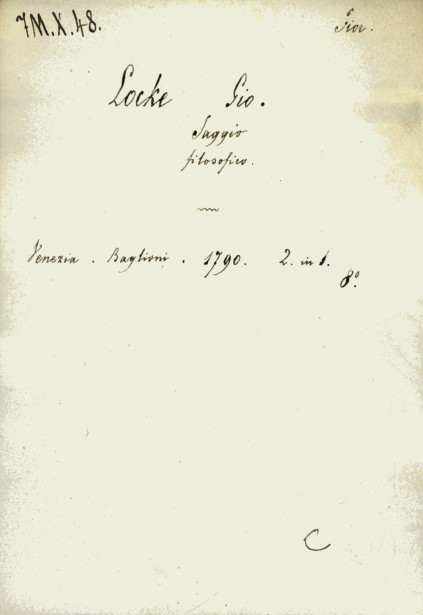 7M.X.48.
Locke Gio.
Saggio
filosofico.
Venezia . Baglioni . 1790. 2. in 1.
8º.
C